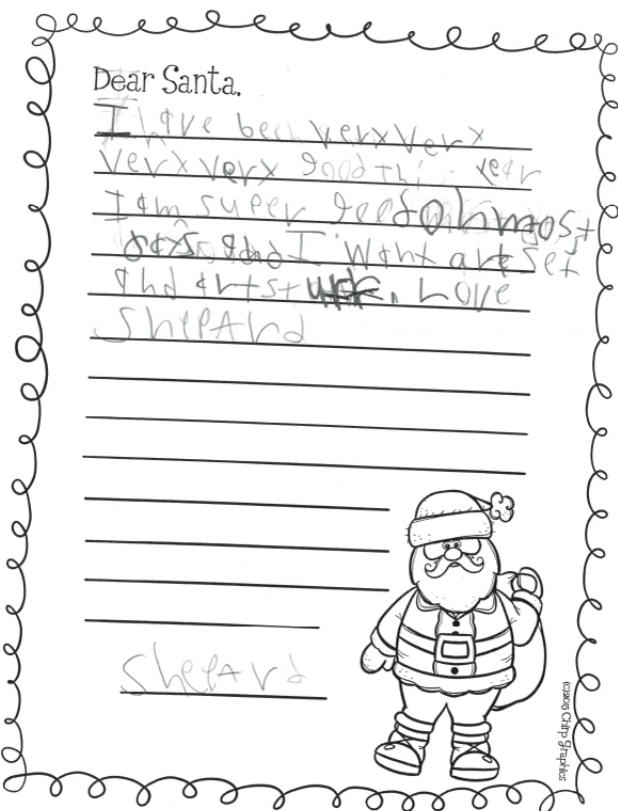 Dear Santa,
I have been very very
very very good this year
I am super good on most
days, and I want art set
and art stuff. Love
Shepard
Shepard
(c)2015 Chirp Graphics